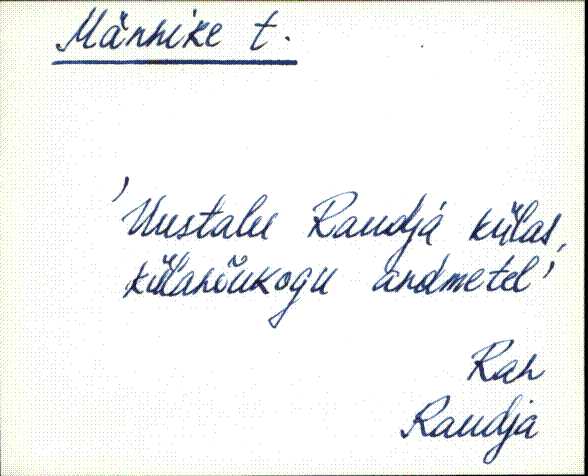 Männike t.
'Uustalu Raudja külas,
külanõukogu andmetel'
Ran
Raudja